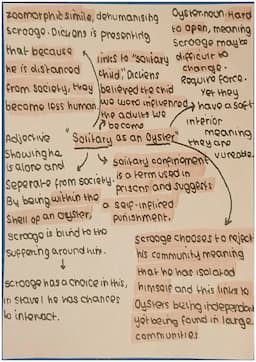 zoomorphic simile, dehumanising
scrooge. Dickens is presenting
that because
he is distanced
from society, they
become less human.
links to "solitary
child", Dickens
believed the child
we were influenced
the adults we
become
Oyster-noun: Hard
to open, meaning
Scrooge maybe
difficult to
change.
Require force.
Yet they
have a soft
interior
meaning
they are
"Solitary as an Oyster"
Adjective
Showing he
is alone and
Seperate from society.
By being within the
Shell of an oyster,
scrooge is blind to the
suffering around him.
scrooge has a choice in this,
in stave 1 he was chances
to interact.
solitary confinement
is a term used in
prisons and suggests
a self-inflicted
punishment.
scrooge chooses to reject
his community meaning
that he has isolated
himself and this links to
Oysters being independant
yet being found in large
communities